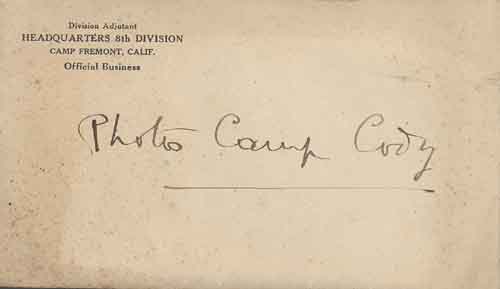 Division Adjutant
HEADQUARTERS 8th DIVISION
CAMP FREMONT, CALIF.
Official Business
Photos Camp Cody